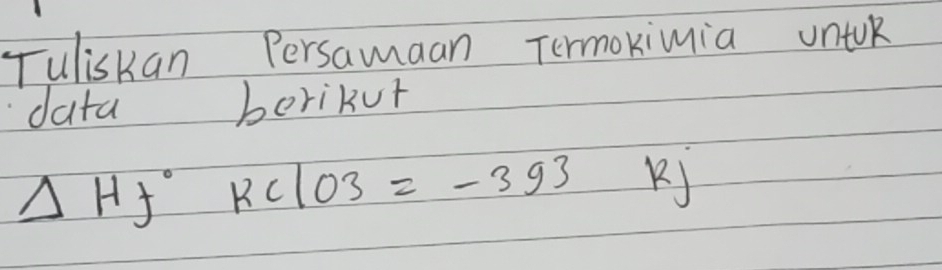 Tuliskan Persamaan Termokimia untuk
data berikut
Δ Hf° KClO3 = -393 kj